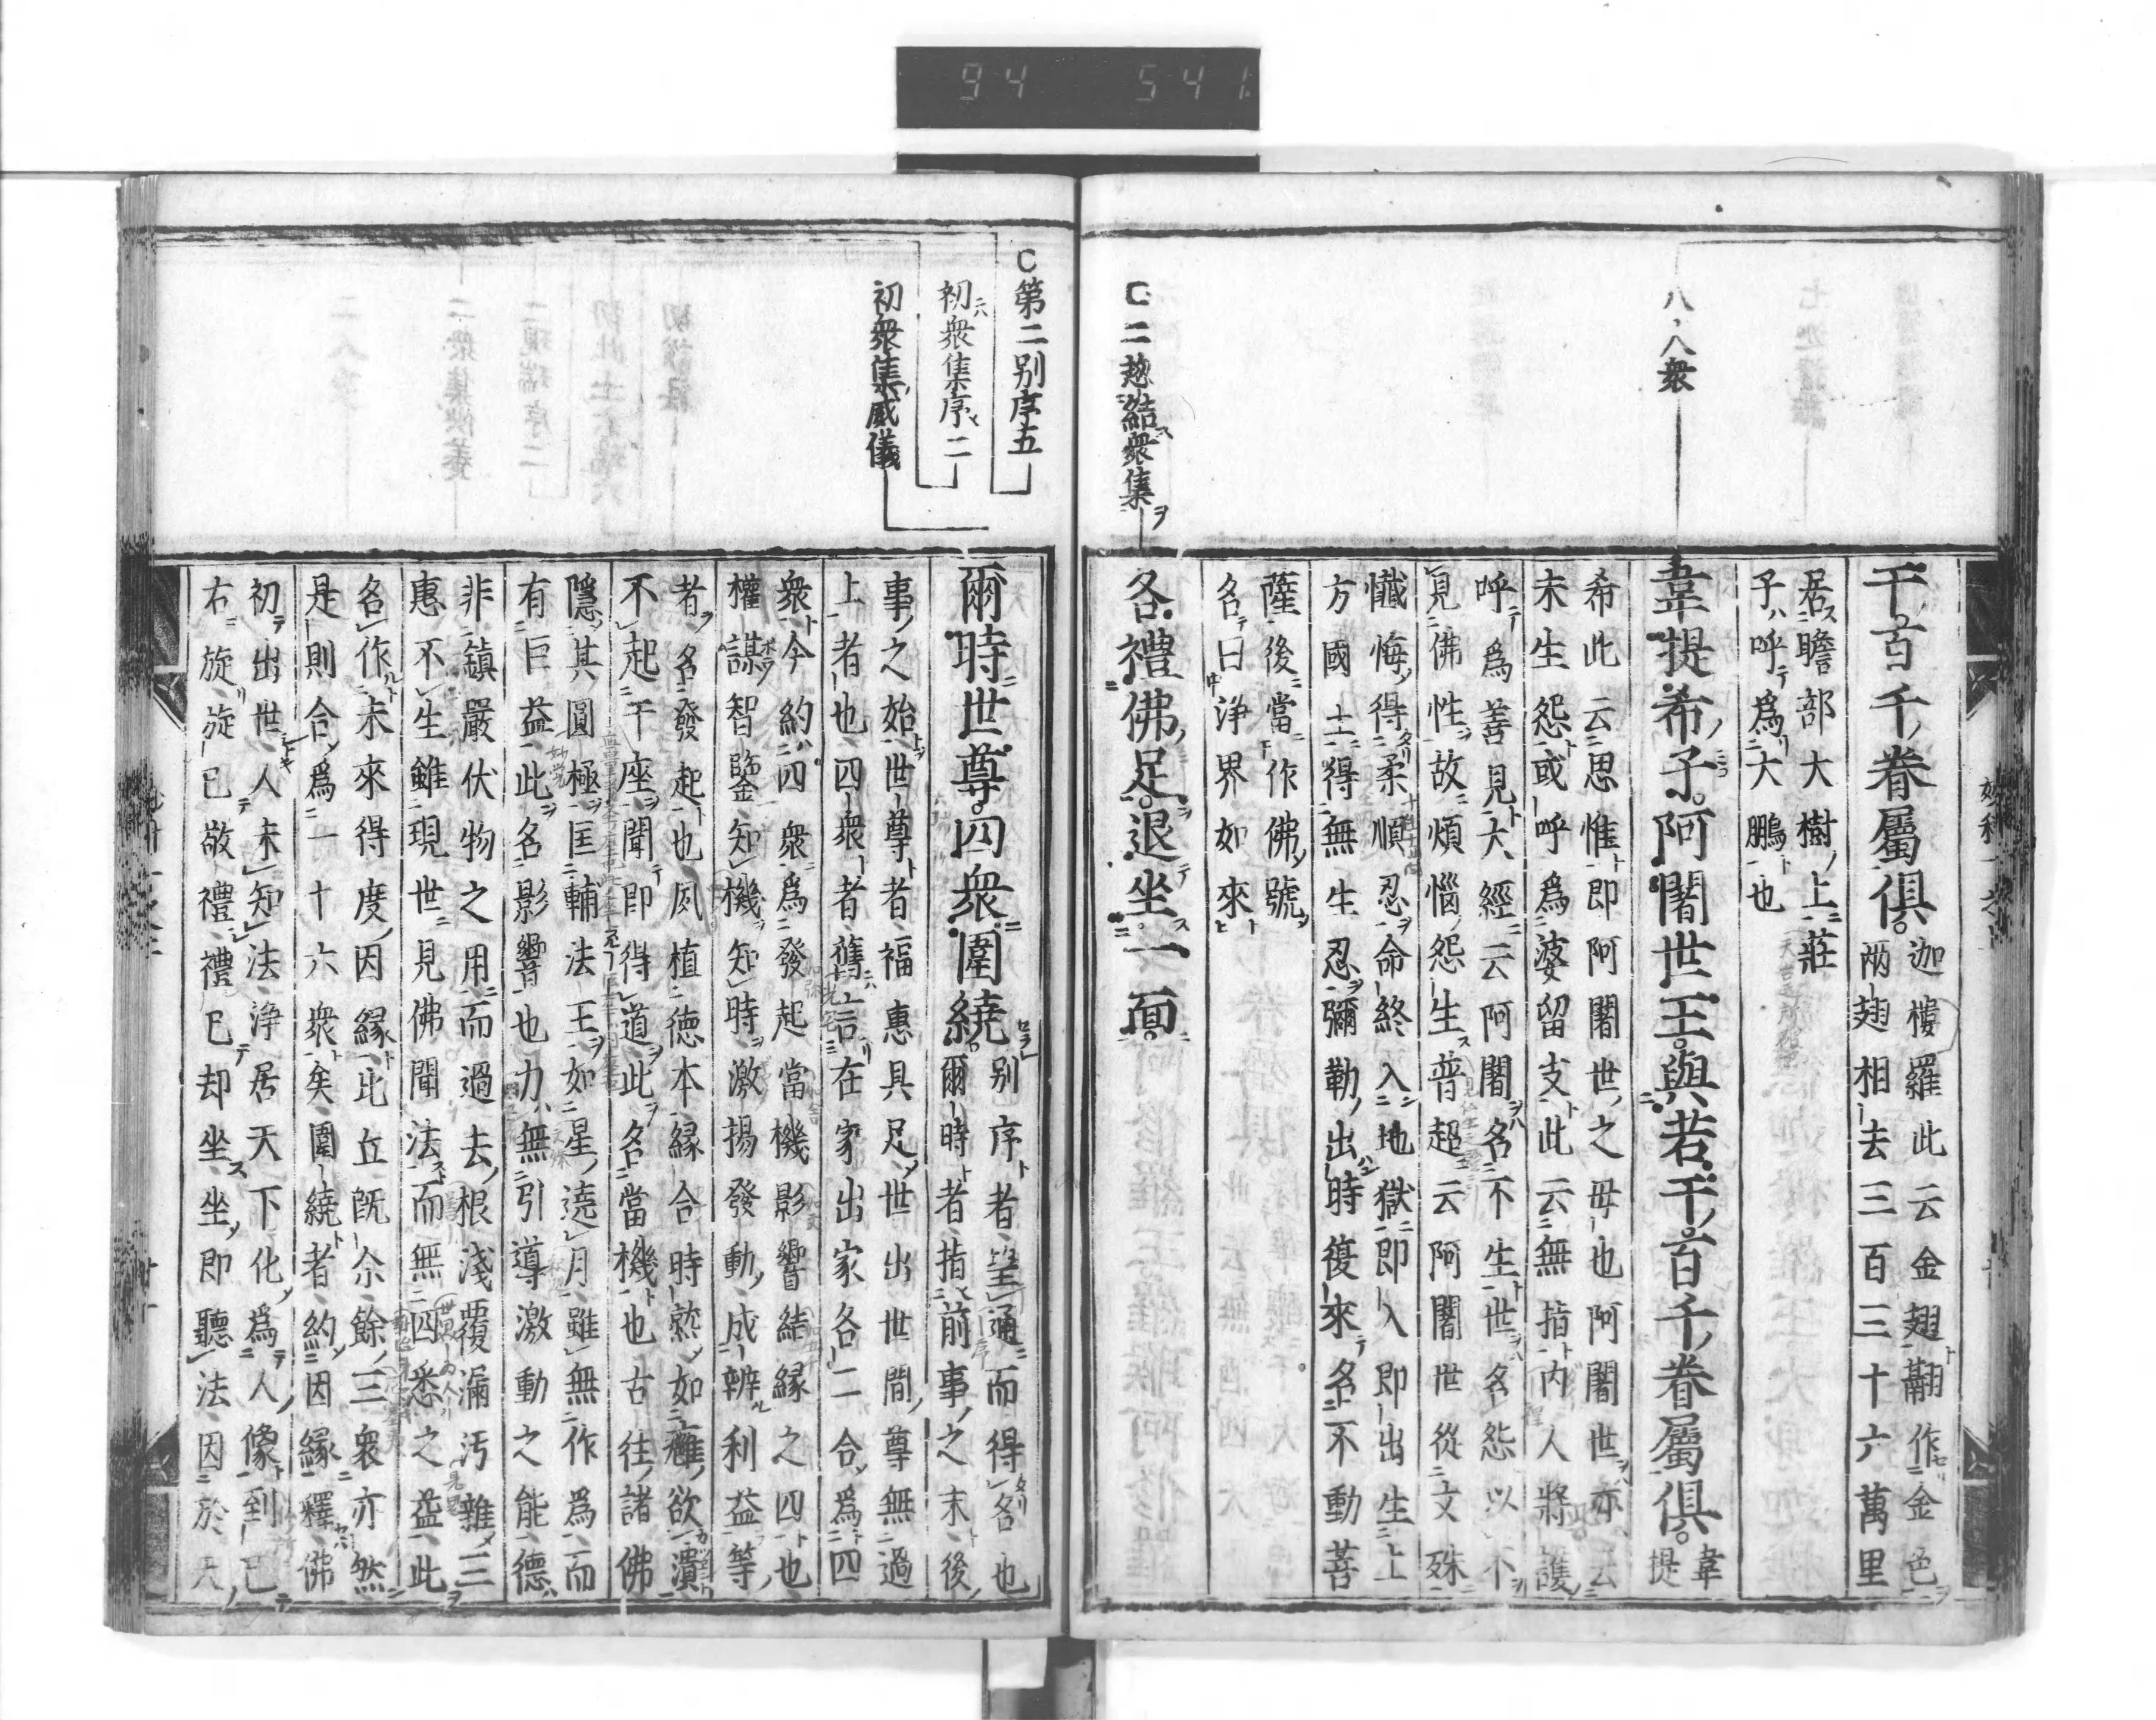 94 541
八八衆
二惣結衆集
干百千眷屬俱
迦樓羅此云金翅翮作金色
兩翅相去三百三十六萬里
居瞻部大樹上莊
子呼爲大鵬也
韋提希子阿闍世王與若干百千眷屬俱
韋
提
希此云思惟即阿闍世之母也阿闍世亦云
未生怨或呼爲婆留支此云無指內人將護
呼爲善見大經云阿闍名不生世名怨以不
見佛性故煩惱怨生普超云阿闍世從文殊
懺悔得柔順忍命終入地獄即入即出生上
方國土得無生忍彌勒出時復來名不動菩
薩後當作佛號
名曰淨界如來
各禮佛足退坐一面
第二別序五
初衆集序二
初衆集威儀
爾時世尊四衆圍繞
別序者望通而得名也
爾時者指前事之末後
事之始世尊者福惠具足世出世間尊無過
上者也四衆者舊云在家出家各二合爲四
衆今約四衆爲發起當機影響結緣之四也
權謀智鑒知機知時激揚發動成辨利益等
者名發起也夙植德本緣合時熟如癰欲潰
不起干座聞即得道此名當機也古往諸佛
隱其圓極匡輔法王如星遶月雖無作爲而
有巨益此名影響也力無引導激動之能德
非鎮嚴伏物之用而過去根淺覆漏汚雜三
惠不生雖現世見佛聞法而無四悉之益此
名作未來得度因緣比丘既尒餘三衆亦然
是則合爲一十六衆矣圍繞者約因緣釋佛
初出世人未知法淨居天下化爲人像到已
右旋旋已敬禮禮已却坐坐即聽法因於天